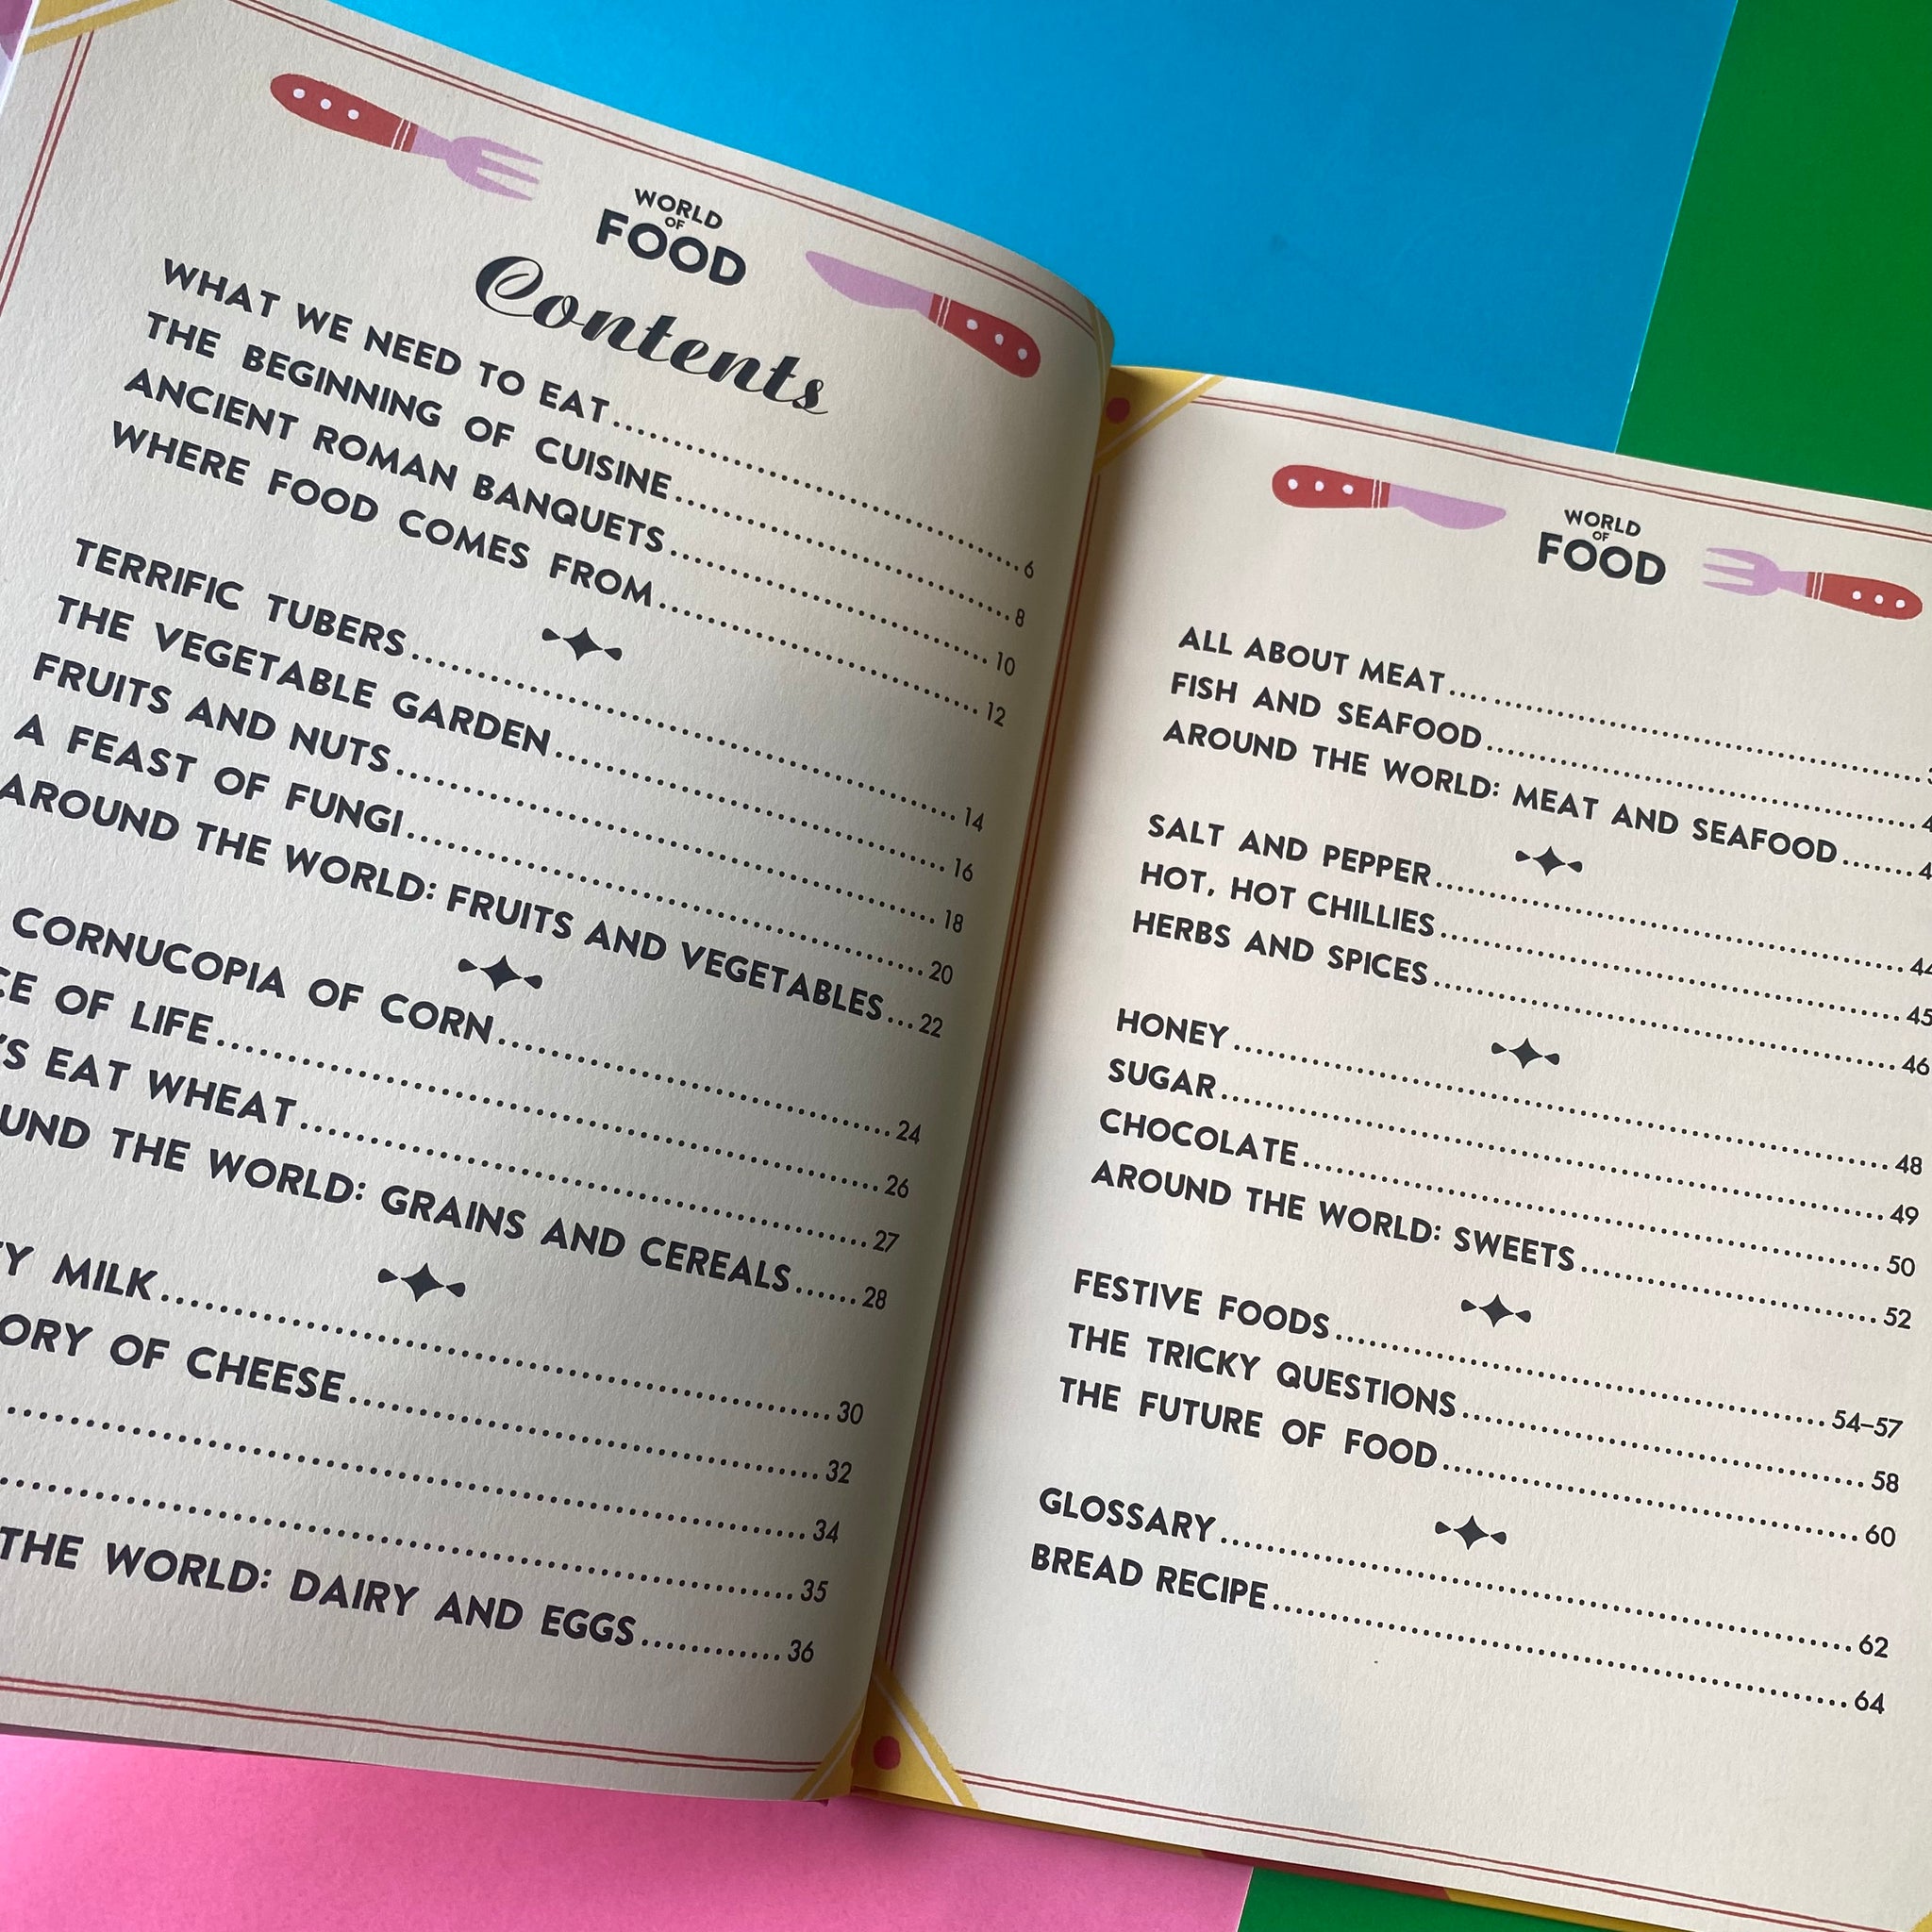 WORLD
OF
FOOD
Contents
WHAT WE NEED TO EAT..........6
THE BEGINNING OF CUISINE..........8
ANCIENT ROMAN BANQUETS..........10
WHERE FOOD COMES FROM..........12
TERRIFIC TUBERS..........14
THE VEGETABLE GARDEN..........16
FRUITS AND NUTS..........18
A FEAST OF FUNGI..........20
AROUND THE WORLD: FRUITS AND VEGETABLES...22
CORNUCOPIA OF CORN..........24
CE OF LIFE..........26
'S EAT WHEAT..........27
UND THE WORLD: GRAINS AND CEREALS......28
Y MILK..........30
ORY OF CHEESE..........32
..........34
..........35
THE WORLD: DAIRY AND EGGS..........36
WORLD
OF
FOOD
ALL ABOUT MEAT..........
FISH AND SEAFOOD..........4
AROUND THE WORLD: MEAT AND SEAFOOD......4
SALT AND PEPPER..........44
HOT, HOT CHILLIES..........45
HERBS AND SPICES..........46
HONEY..........48
SUGAR..........49
CHOCOLATE..........50
AROUND THE WORLD: SWEETS..........52
FESTIVE FOODS..........54–57
THE TRICKY QUESTIONS..........58
THE FUTURE OF FOOD..........60
GLOSSARY..........62
BREAD RECIPE..........64